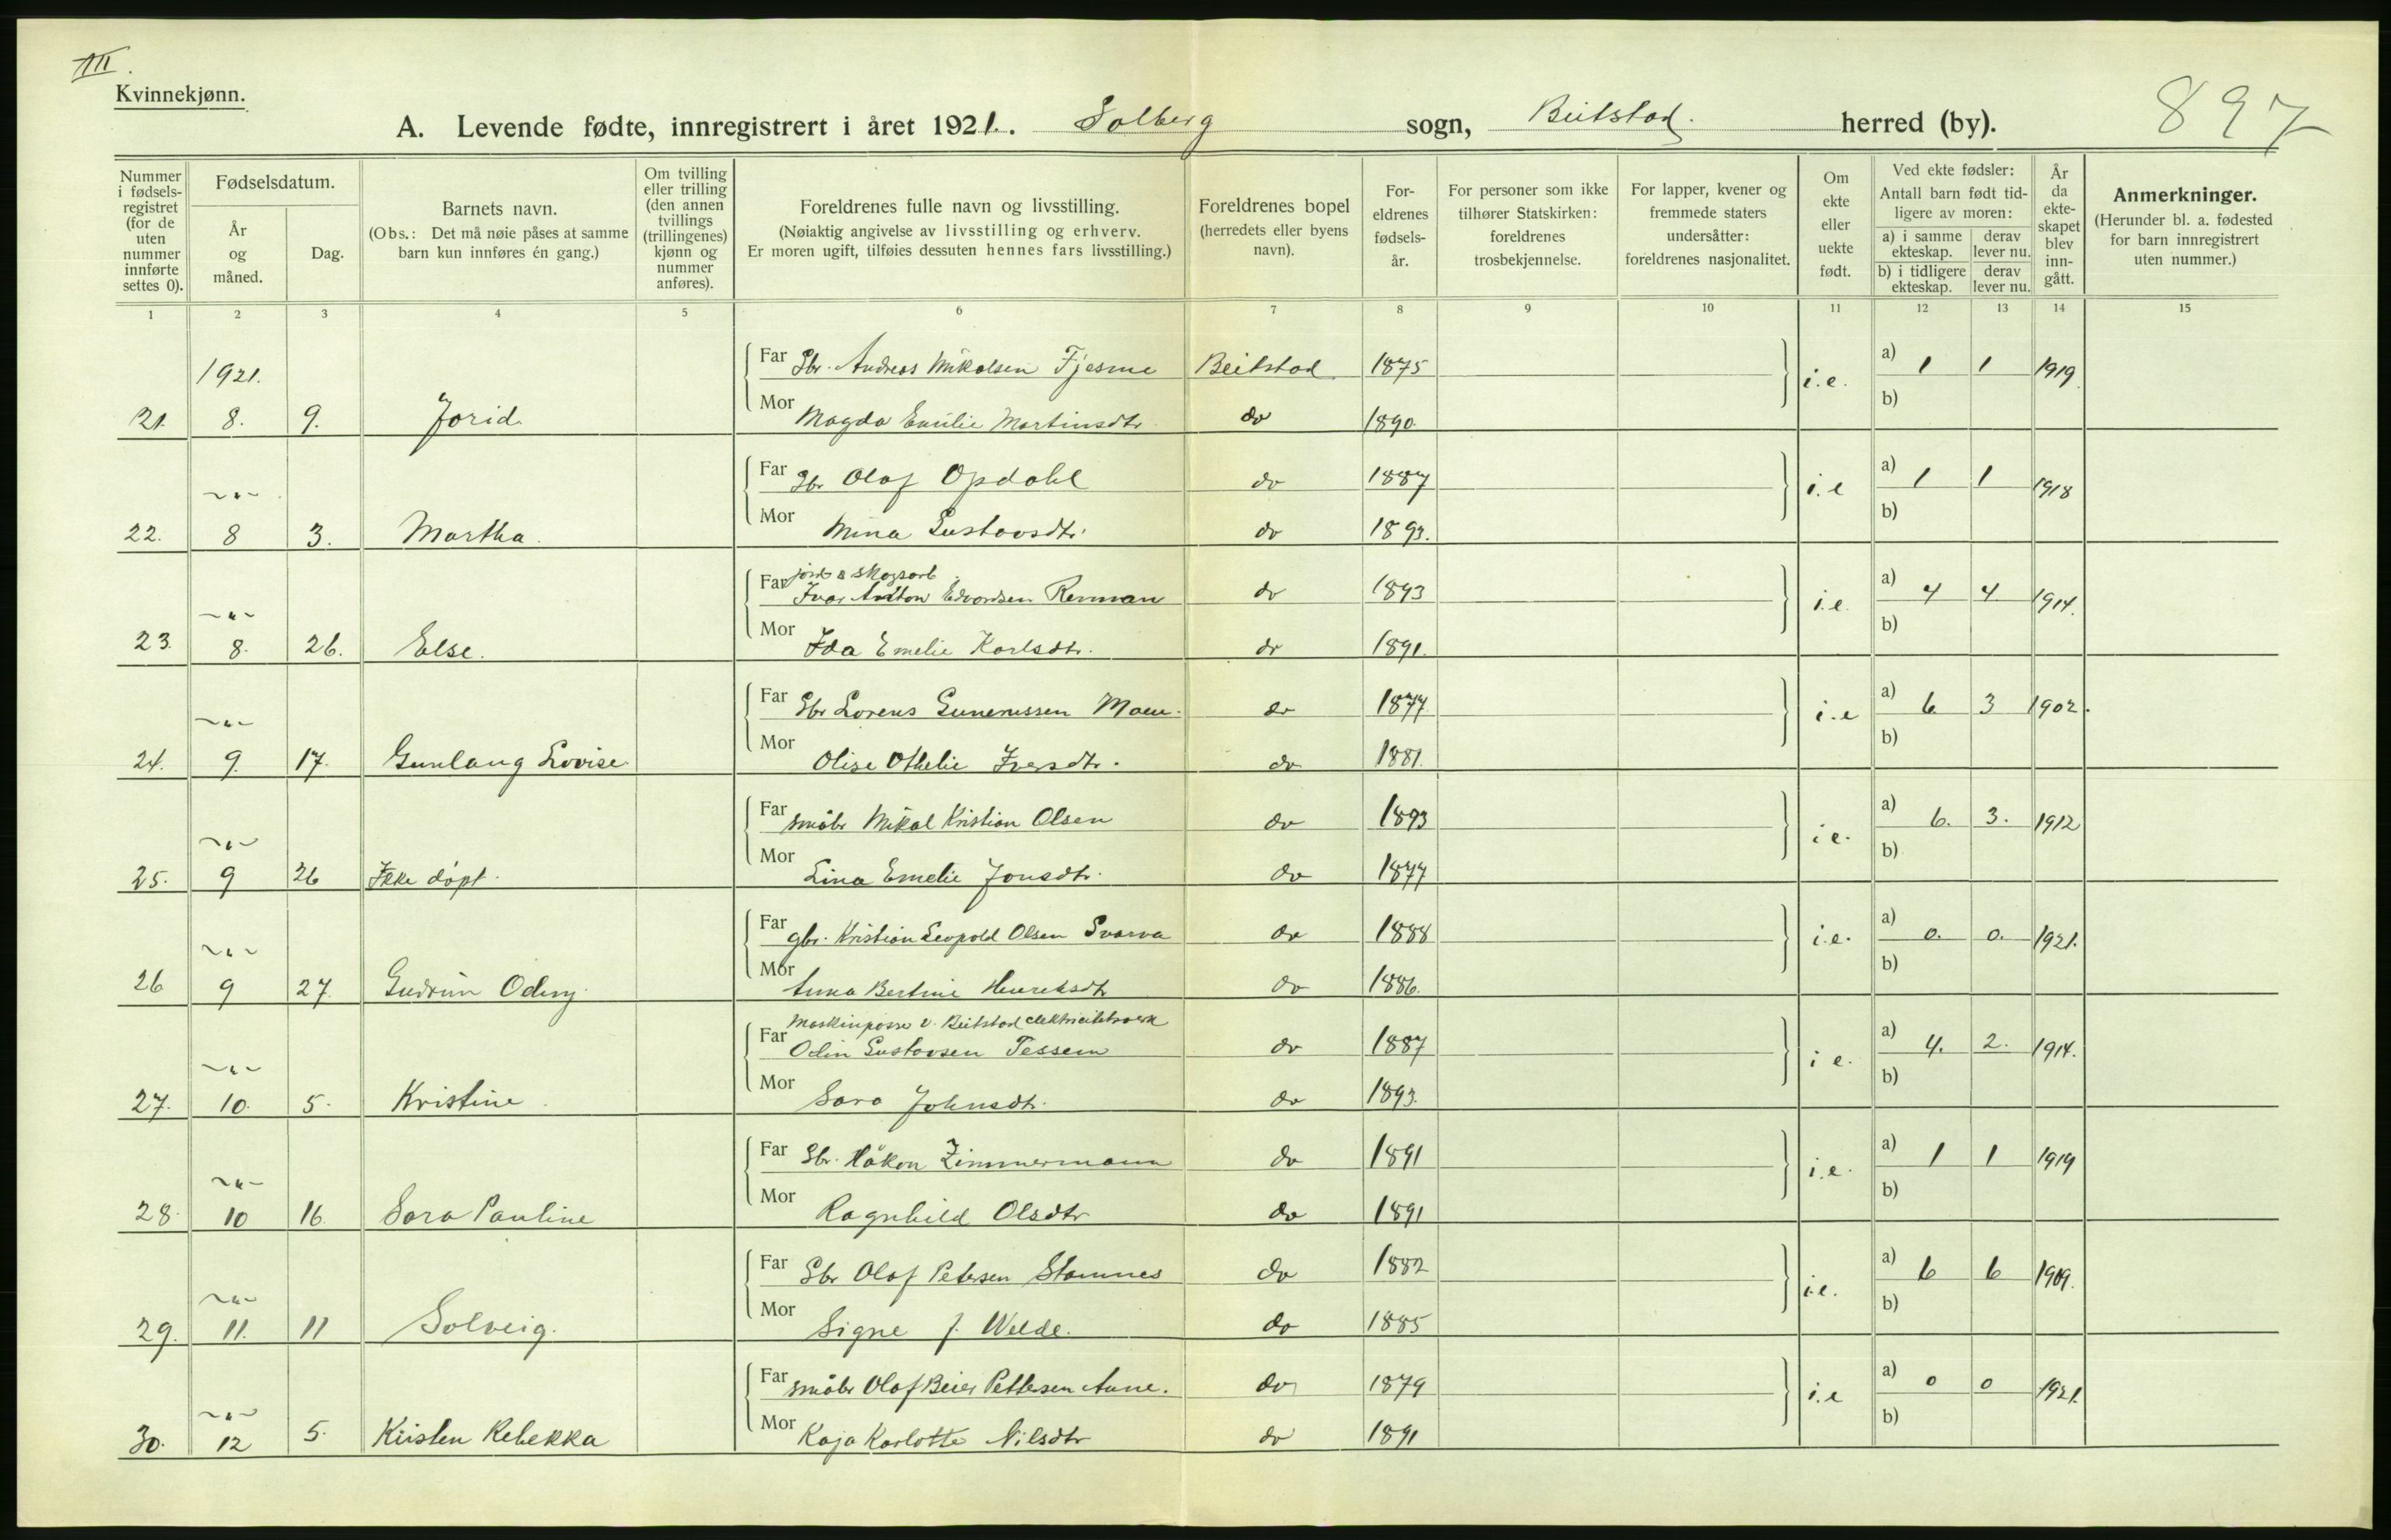 III.
Kvinnekjønn.
897
A. Levende fødte, innregistrert i året 1921. Solberg sogn, Beitstad. herred (by).
Nummer i fødsels-registret (for de uten nummer innførte settes 0).
Fødselsdatum.
År og måned.
Dag.
Barnets navn.
(Obs.: Det må nøie påses at samme barn kun innføres én gang.)
Om tvilling eller trilling (den annen tvillings (trillingenes) kjønn og nummer anføres).
Foreldrenes fulle navn og livsstilling.
(Nøiaktig angivelse av livsstilling og erhverv.
Er moren ugift, tilføies dessuten hennes fars livsstilling.)
Foreldrenes bopel
(herredets eller byens navn).
For-eldrenes fødsels-år.
For personer som ikke tilhører Statskirken: foreldrenes trosbekjennelse.
For lapper, kvener og fremmede staters undersåtter: foreldrenes nasjonalitet.
Om ekte eller uekte født.
Ved ekte fødsler:
Antall barn født tid-ligere av moren:
a) i samme ekteskap. derav lever nu.
b) i tidligere ekteskap. derav lever nu.
År da ekte-skapet blev inn-gått.
Anmerkninger.
(Herunder bl. a. fødested for barn innregistrert uten nummer.)
1 2 3 4 5 6 7 8 9 10 11 12 13 14 15
1921.
Far Gbr. Andreas Mikalsen Fjesme Beitstad 1875 i.e. a) 1 1 1919
21. 8. 9. Jorid. Mor Magda Emilie Martinsdtr. do 1890. b)
~"~ Far Gbr Olaf Opdahl do 1887 i.e a) 1 1 1918
22. 8 3. Martha. Mor Mina Gustavsdtr. do 1893. b)
jord & skogsarb.
~"~ Far Ivar Anton Edvardsen Renman do 1893 i.e. a) 4 4 1914.
23. 8. 26. Else. Mor Ida Emelie Karlsdtr. do 1891. b)
~"~ Far Gbr Lorens Gunerussen Moen. do 1877 i.e a) 6 3 1902.
24. 9. 17. Gunlaug Lovise. Mor Olise Othelie Iversdtr. do 1881. b)
~"~ Far småbr Mikal Kristian Olsen do 1893 i e. a) 6. 3. 1912
25. 9 26 Ikke døpt. Mor Lina Emelie Jonsdtr. do 1877 b)
~"~ Far gbr. Kristian Leopold Olsen Svarva do 1888 i.e. a) 0. 0. 1921.
26 9 27. Gudrun Odny. Mor Anna Bertine Henriksdtr do 1886. b)
Maskinpasser v. Beitstad elektricitetsverk
~"~ Far Odin Gustavsen Tessem do 1887 i e. a) 4. 2. 1914.
27. 10. 5. Kristine. Mor Sara Johnsdtr. do 1893. b)
~"~ Far Gbr. Håkon Zimmermann do 1891 i.e. a) 1 1 1919
28. 10 16. Sara Pauline Mor Ragnhild Olsdtr do 1891 b)
~"~ Far Gbr Olaf Petersen Stamnes do 1882 i.e. a) 6 6 1909.
29. 11. 11 Solveig. Mor Signe f. Welde. do 1885 b)
~"~ Far småbr Olaf Beier Pettersen Aune. do 1879 i.e a) 0 0 1921.
30. 12 5. Kirsten Rebekka Mor Kaja Karlotte Nilsdtr do 1891 b)